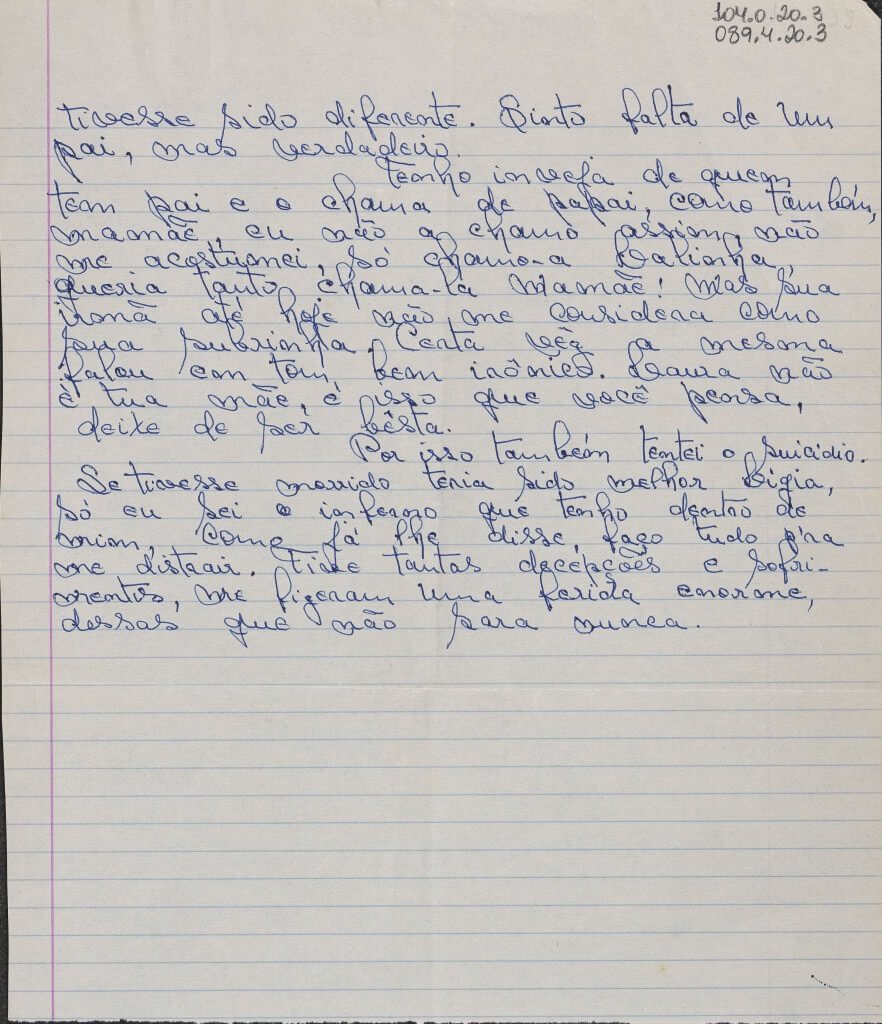 104.0.20.3
089.4.20.3
tivesse sido diferente. Sinto falta de um
pai, mas verdadeiro.
Tenho inveja de quem
tem pai e o chama de papai, como também,
mamãe, eu não a chamo assim, não
me acostumei, só chamo-a
queria tanto chama-la Mamãe! Mas sua
irmã até hoje não me considera como
sua subrinha. Certa vêz a mesma
falou em tom bem irônico. Laura não
é tua mãe, é isso que você pensa,
deixe de ser bêsta.
Por isso também tentei o suicídio.
Se tivesse morrido teria sido melhor Ligia,
só eu sei o inferno que tenho dentro de
mim, como já lhe disse, faço tudo p'ra
me distrair. Tive tantas decepções e sofri-
mentos, me fizeram uma ferida enorme,
dessas que não para nunca.